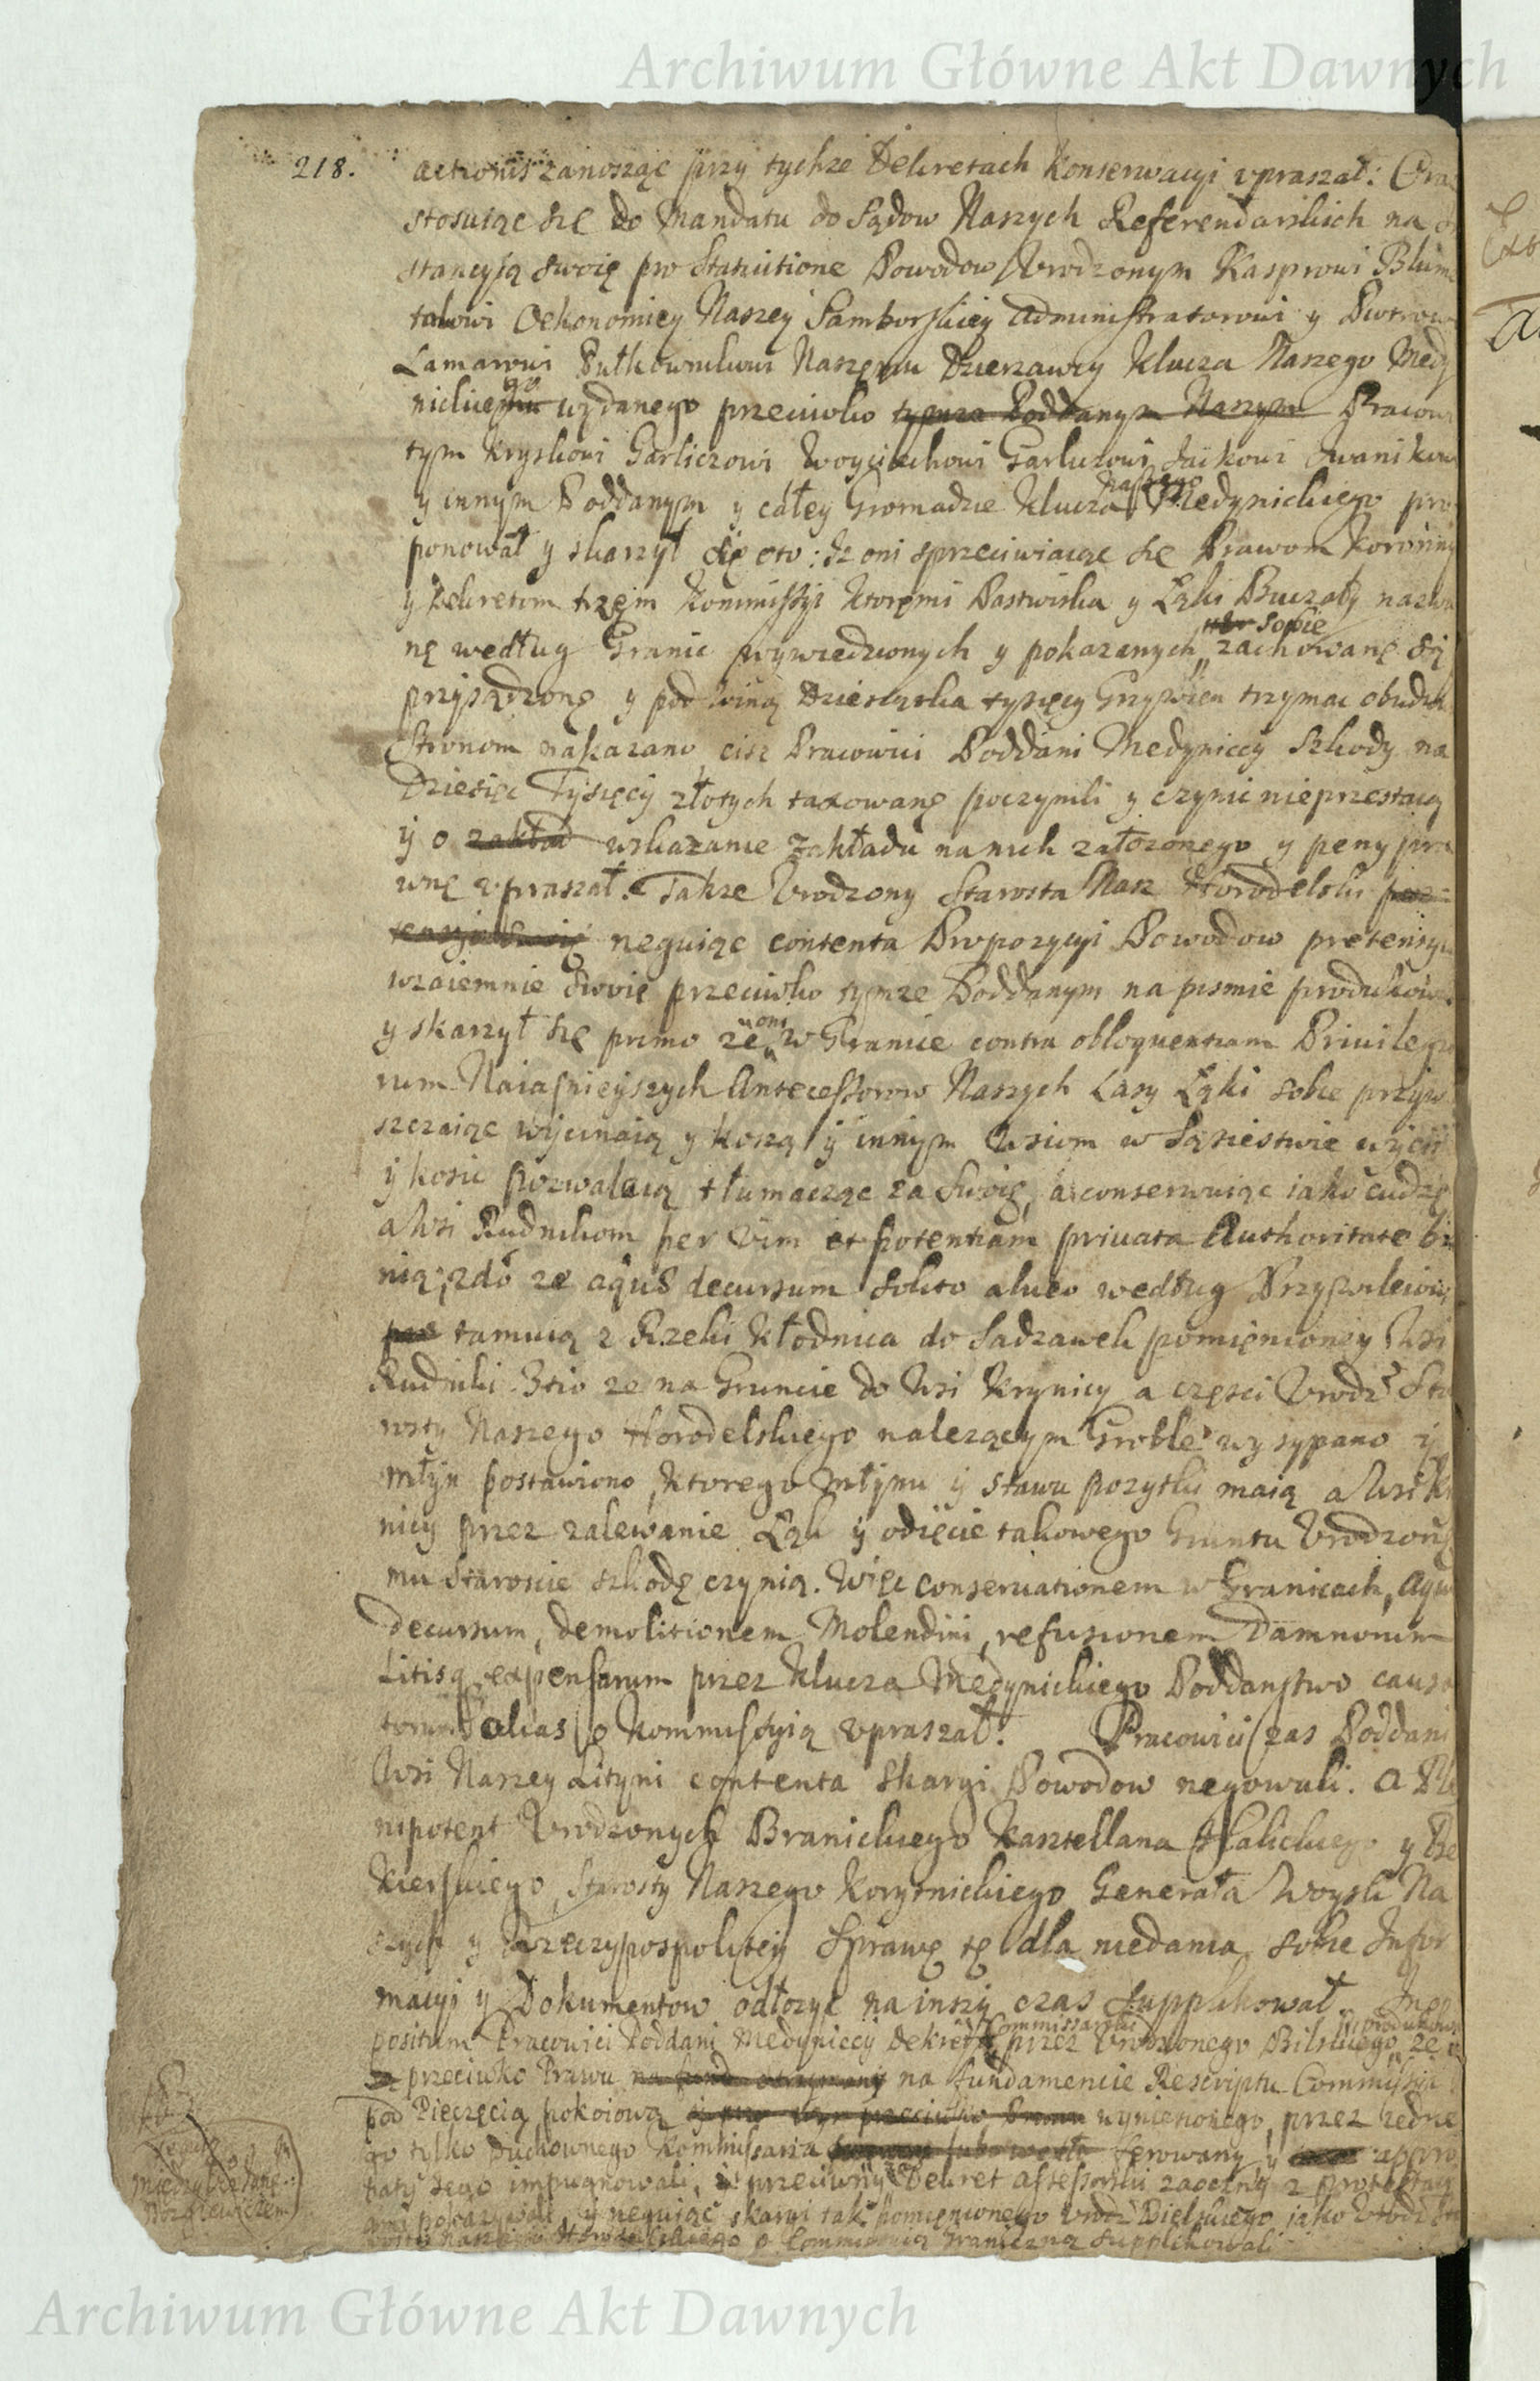 Archiwum Główne Akt Dawnych
218.
actionis zanosząc przy tychze Dekretach konserwacyi vpraszał: Oraz
stosuiąc się do Mandatu do Sądow Naszych Referendarskich na
stancyią swoię pro Statuitione Powodow Vrodzonym Kasprowi Blum
talowi Oekonomiey Naszey Samborskiey Administratorowi y Piotrowi
Lamarowi Pułkownikowi Naszemu Dzierzawcy Klucza Naszego Medy
nickiego wydanego przeciwko tymze Poddanym Naszym Pracowi
tym Kryskowi Garliczowi Woyciechowi Garliczowi Jaikowi Iwanikow
y innym Poddanym y całey Gromadzie Klucza Naszego Medynickiego pro
ponował y skarzył się oto: Iz oni sprzeciwiaiąc się Prawom koronny
y Dekretom trzem Kommissyi ktoremi Pastwiska y Łąki Buczały nazwa
ne według Granic wywiedzionych y pokazanych sobie zachowane są
przysądzone y pod winą Dziesiątka tysięcy Grzywien trzymac obudwu
Stronom nakazano, cisz Pracowici Poddani Medyniccy Szkody na
Dziesięc Tysięcy złotych taxowane poczynili y czynic nieprzestaią
y o zakład wskazanie Zakładu na nich załozonego y peny pra
wne vpraszał. Takze Vrodzony Starosta Nasz Horodelski
neguiąc contenta Propozycyi Powodow pretensyi
wzaiemnie swoie przeciwko tymze Poddanym na pismie produkow
y skarzył się primo ze oni w Granice contra obloquentiam Privilegio
rum Naiasnieyszych Antecessorow Naszych Lasy Łąki sobie przyw
szczaiąc wycinaią y koszą y innym Wsiom w Sąsiestwie
y kosic pozwalaią tłumacząc za Swoie, a conserwuiąc iako cudze
a Wsi Rudnikom per Vim et potentiam privata Authoritate
nią; 2do ze aquae decursum solito alueo według Przywileiow
tamuią z Rzeki Kłodnica do Sadzawek pomienioney Wsi
Rudniki. 3tio ze na Gruncie do Wsi Krynicy a części Vrodz. Sta
rosty Naszego Horodelskiego nalezącym Groble wysypano y
młyn postawiono, ktorego młynu y stawu pozytki maią a Wsi Kry
nicy przez zalewanie Łąk y odięcie takowego Gruntu Vrodzone
mu Staroscie szkodę czynią. Więc conservationem w Granicach, Aquae
decursum, demolitionem Molendini, refusionem Damnorum
Litisq. expensarum przez Klucza Medynickiego Poddanstwo causa
torum alias o Kommissyią vpraszał. Pracowici zas Poddani
Wsi Naszey Lityni contenta Skargi Powodow negowali. A Ple
nipotent Vrodzonych Branickiego Kasztellana Halickiego y Be
kierskiego, Starosty Naszego Korytnickiego Generała Woysk Na
szych y Rzeczypospolitey Sprawę tę dla niedania sobie Infor
macyi y Dokumentow odłozyc na inszy czas supplikował.
positum Pracowici Poddani Medyniccy Dekret Commissarski przez Vrodzonego Bilskiego, ze
przeciwko Prawu na fundamencie Rescriptu Commissyi
pod Pieczęcią pokoiową wyniesionego, przez iedne
go tylko Duchownego Kommissarza ferowany y appro
baty iego impugnowali, przeciwny Dekret Assessorski zaoczny z protestacy
ami pokazywali, y neguiąc skargi tak pomienionego Vrodz. Bielskiego iako Vrodz. Sta
rosty Naszego Horodelskiego o Commissyią Graniczną supplikowali
Archiwum Główne Akt Dawnych